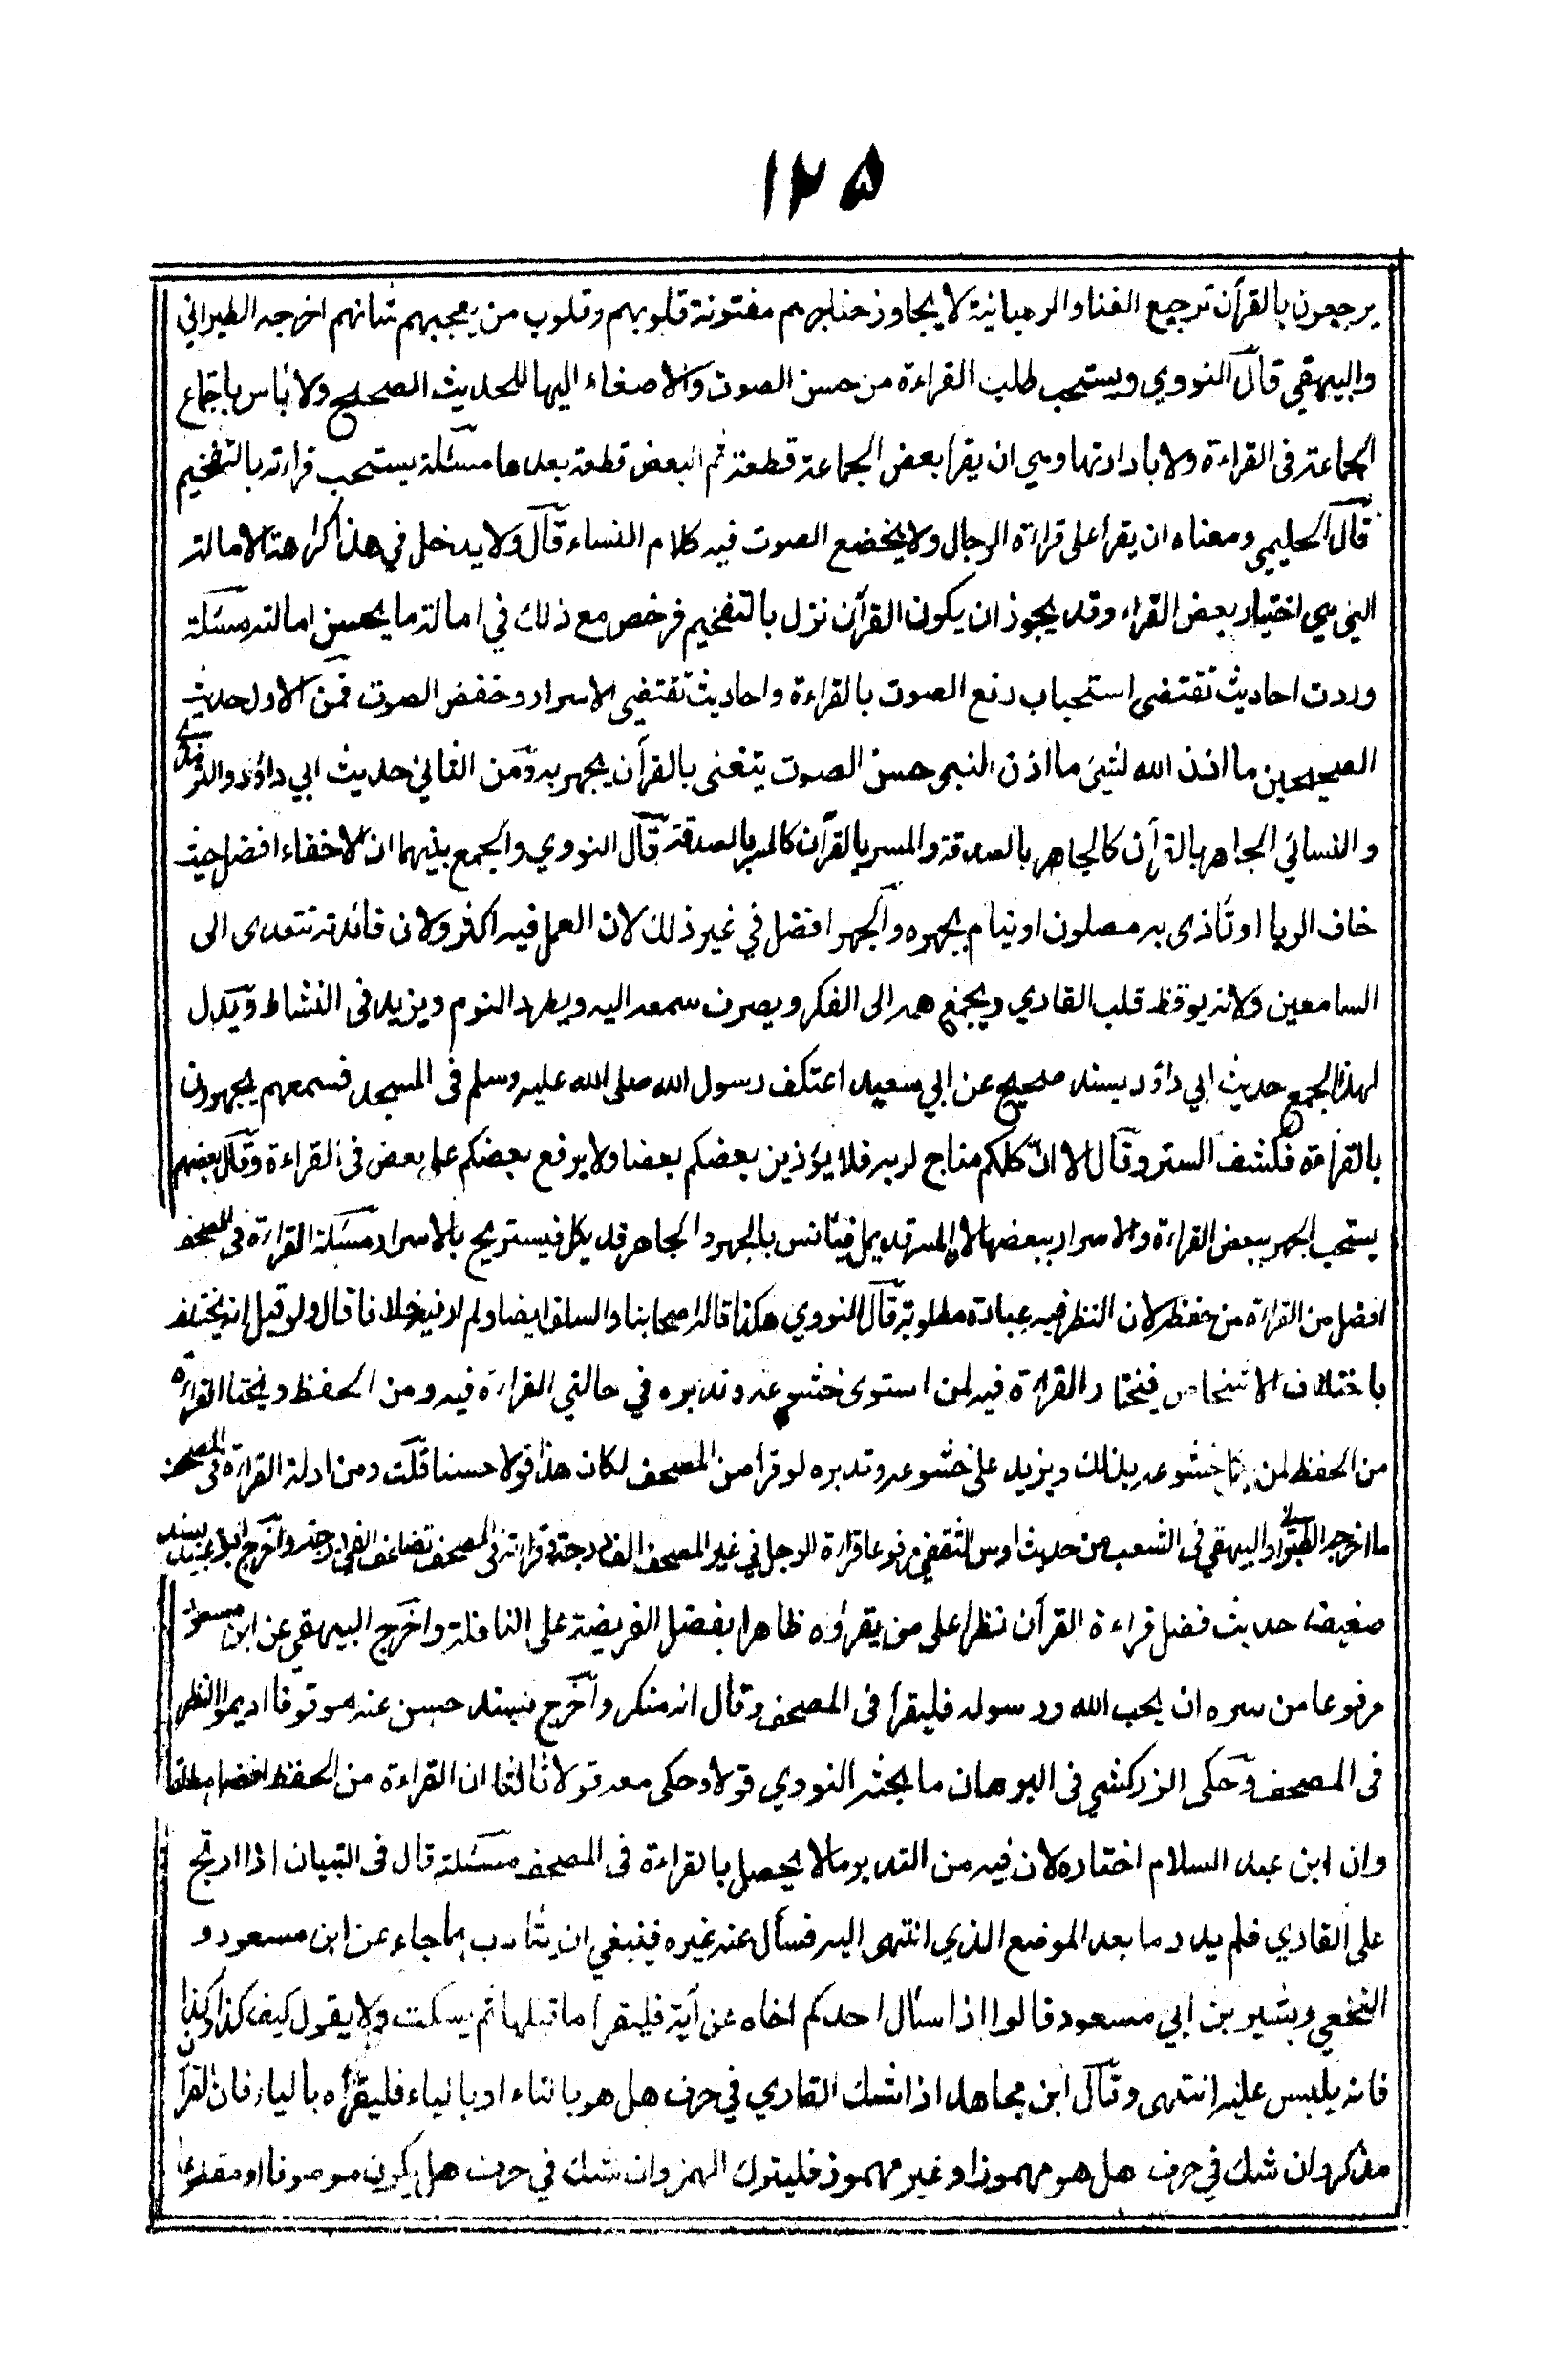 ١٢٥
يرجعون بالقرآن ترجيع الغنا والرهبانية لا يجاوز حناجرهم مفتونة قلوبهم وقلوب من يعجبهم شانهم اخرجه الطبراني
والبيهقي قال النووي ويستحب طلب القراءة من حسن الصوت والاصغاء اليها للحديث الصحيح ولا باس باجتماع
الجماعة فى القراءة ولا بادارتها وهي ان يقرا بعض الجماعة قطعة ثم البعض قطعة بعدها مسئلة يستحب قراءته بالتفخيم
قال الحليمي ومعناه ان يقرأ على قراءة الرجال ولا يخضع الصوت فيه ككلام النساء قال ولا يدخل في هذا كراهة الامالة
التي هي اختيار بعض القراء وقد يجوز ان يكون القرآن نزل بالتفخيم فرخص مع ذلك في امالة ما يحسن امالته مسئلة
وردت احاديث تقتضي استحباب رفع الصوت بالقراءة واحاديث تقتضي الاسرار وخفض الصوت فمن الاول حديث
الصحيحين ما اذن الله لشيئ ما اذن لنبي حسن الصوت يتغنى بالقرآن يجهر به ومن الثاني حديث ابي داؤد والترمذي
والنسائي الجاهر بالقرآن كالجاهر بالصدقة والمسر بالقرآن كالمسر بالصدقة قال النووي والجمع بينهما ان الاخفاء افضل حيث
خاف الريا او تأذى به مصلون او نيام بجهره والجهر افضل في غير ذلك لان العمل فيه اكثر ولان فائدته تتعدى الى
السامعين ولانه يوقظ قلب القاري ويجمع همه الى الفكر ويصرف سمعه اليه ويطرد النوم ويزيد فى النشاط ويدل
لهذا الجمع حديث ابي داؤد بسند صحيح عن ابي سعيد اعتكف رسول الله صلى الله عليه وسلم فى المسجد فسمعهم يجهرون
بالقراءة فكشف الستر وقال الا ان كلكم مناج لربه فلا يؤذين بعضكم بعضا ولا يرفع بعضكم على بعض فى القراءة وقال بعضهم
يستحب الجهر ببعض القراءة والاسرار ببعضها لان المسر قد يمل فيأنس بالجهر والجاهر قد يكل فيستريح بالاسرار مسئلة القراءة فى المصحف
افضل من القراءة من حفظه لان النظر فيه عبادة مطلوبة قال النووي هكذا قاله اصحابنا والسلف ايضا ولم ار فيه خلافا قال ولو قيل انه يختلف
باختلاف الاشخاص فيختار القراءة فيه لمن استوى خشوعه وتدبره في حالتي القراءة فيه ومن الحفظ ويختار القراءة
من الحفظ لمن خشوعه بذلك ويزيد على خشوعه وتدبره لو قرأ من المصحف لكان هذا قولا حسنا قلت ومن ادلة القراءة فى المصحف
ما اخرجه الطبراني والبيهقي فى الشعب من حديث اوس الثقفي مرفوعا قراءة الرجل في غير المصحف الف درجة وقراءته فى المصحف تضاعف الفي درجة واخرج ابو عبيد بسند
ضعيف حديث فضل قراءة القرآن نظرا على من يقرؤه ظاهرا كفضل الفريضة على النافلة واخرج البيهقي عن ابن مسعود
مرفوعا من سره ان يحب الله ورسوله فليقرأ فى المصحف وقال انه منكر واخرج بسند حسن عنه موقوفا اديموا النظر
فى المصحف وحكى الزركشي فى البرهان ما بحثه النووي قولا وحكى معه قولا ثالثا ان القراءة من الحفظ افضل مطلقا
وان ابن عبد السلام اختاره لان فيه من التدبر ما لا يحصل بالقراءة فى المصحف مسئلة قال فى التبيان اذا ارتج
على القاري فلم يدر ما بعد الموضع الذي انتهى اليه فسأل عنه غيره فينبغي ان يتأدب بما جاء عن ابن مسعود و
النخعي وبشير بن ابي مسعود قالوا اذا سأل احدكم اخاه عن آية فليقرأ ما قبلها ثم يسكت ولا يقول كيف كذا وكذا
فانه يلبس عليه انتهى وقال ابن مجاهد اذا شك القاري في حرف هل هو بالتاء او بالياء فليقرأه بالياء فان القرآن
مذكر وان شك في حرف هل هو مهموز او غير مهموز فليترك الهمز وان شك في حرف هل يكون موصولا او مقطوعا